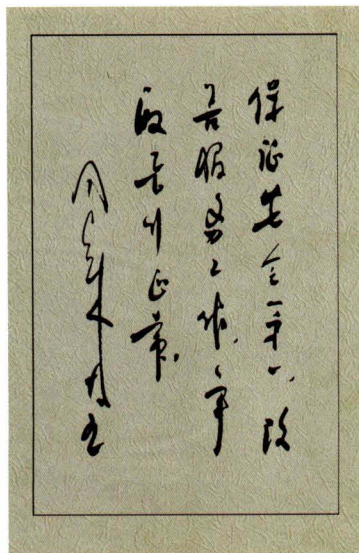 保证安全第一、改
善服务工作、争
取飞行正常。
周恩来